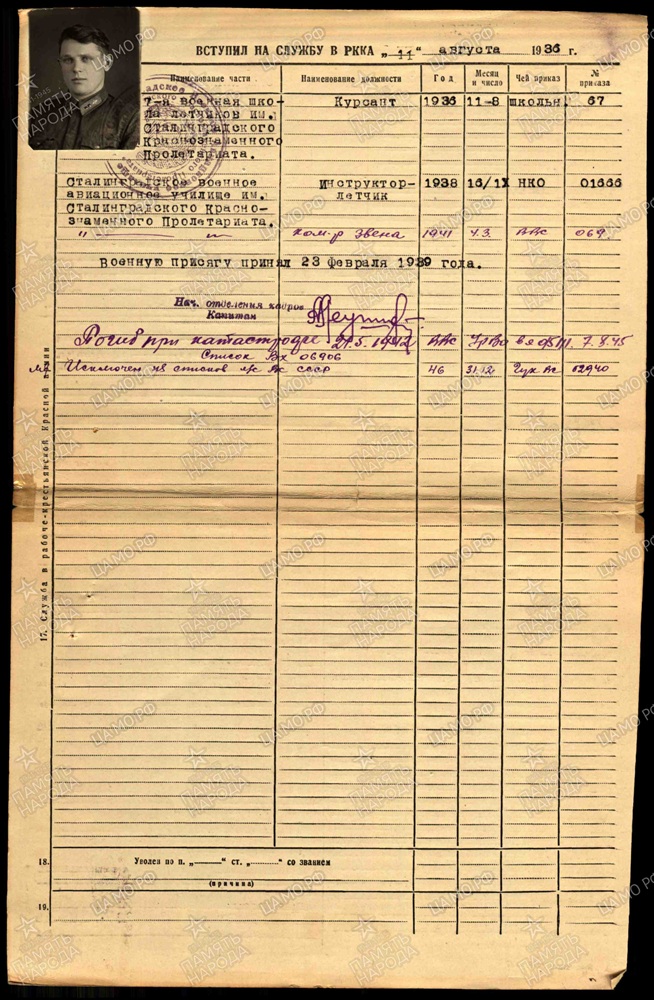 ВСТУПИЛ НА СЛУЖБУ В РККА „11" августа 1936 г.
Наименование части Наименование должности Год Месяц и число Чей приказ № приказа
7-я военная шко- Курсант 1936 11-8 школы 67
ла летчиков им.
Сталинградского
Краснознаменного
Пролетариата.
Сталинградское военное Инструктор- 1938 16/IX НКО 01666
авиационное училище им. летчик
Сталинградского Красно-
знаменного Пролетариата.
" — " ком-р звена 1941 4.3. ВВС 069
Военную присягу принял 23 февраля 1939 года.
Нач. отделения кадров
Капитан
Погиб при катастрофе 21.5.1942 ВВС 7.8.45
Список Вх 06906
Исключен из списков л/с ВС СССР 46 31.12 Гук ВС 02940
17. Служба в рабоче-крестьянской Красной армии
18. Уволен по п. „ " ст. „ " со званием
(причина)
19.
ПАМЯТЬ НАРОДА
ЦАМО.РФ